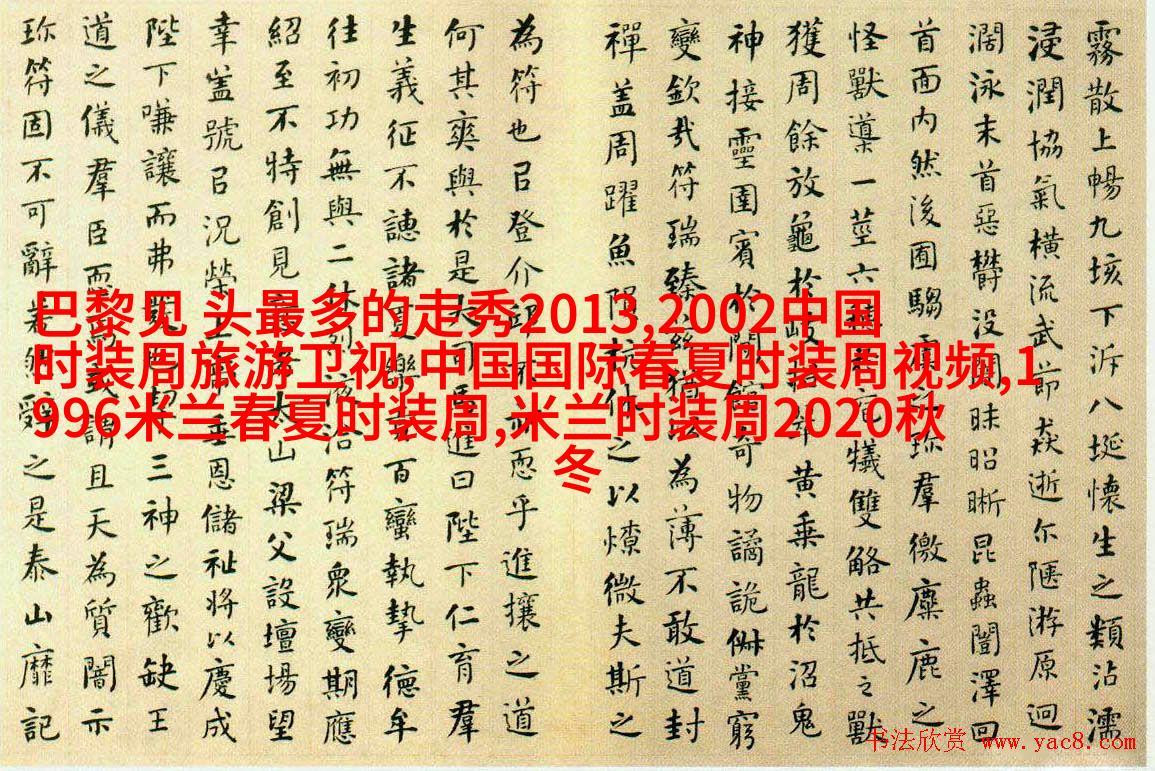 巴黎见 头最多的走秀2013,2002中国
时装周旅游卫视,中国国际春夏时装周视频,1
996米兰春夏时装周,米兰时装周2020秋
冬
霧散上暢九垓下泝八埏懷生之類沾濡
浸潤協氣橫流武節猋逝尒陿游原迥
濶泳末首惡欝沒闇昧昭晰昆蟲闓澤回
首面内然後囿騶虞之珍羣徼麋鹿之
怪獸導一莖六穗於犧雙觡共抵之獸
獲周餘放龜於岐招翠黃乘龍於沼鬼
神接靈圉賓於閒館奇物譎詭俶黨窮
變欽哉符瑞臻兹猶以為薄不敢道封
禪盖周躍魚隕杭休之以燎微夫斯之
為符也㠯登介邱不亦恧乎進攘之道
何其爽與於是大司馬進曰陛下仁育羣
生義征不譓諸夏樂貢百蠻執摯德牟
往初功無與二休烈液洽符瑞衆變期應
紹至不特創見意者太山梁父設壇場望
幸盖號㠯況榮上帝垂恩儲祉將以慶成
陛下嗛讓而弗發三神之歡缺王
道之儀羣臣恧焉或謂且天為質闇示
珍符固不可辭若然辭之是泰山靡記
书法欣赏 www.yac8.com